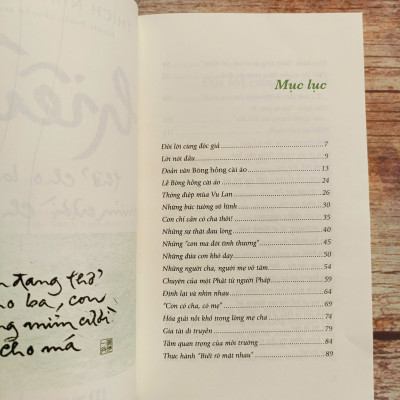 đang thở
ba, con
mỉm cười
cho má
Mục lục
Đôi lời cùng độc giả ........ 7
Lời nói đầu ........ 9
Đoản văn Bông hồng cài áo ........ 13
Lễ Bông hồng cài áo ........ 24
Thông điệp mùa Vu Lan ........ 26
Những bức tường vô hình ........ 30
Con chỉ cần có cha thôi! ........ 35
Những sự thật đau lòng ........ 40
Những “con ma đói tình thương” ........ 45
Những đứa con khó dạy ........ 50
Những người cha, người mẹ vô tâm ........ 54
Chuyện của một Phật tử người Pháp ........ 59
Định lại và nhìn nhau ........ 64
“Con có cha, có mẹ” ........ 69
Hóa giải nỗi khổ trong lòng mẹ cha ........ 74
Gia tài di truyền ........ 79
Tầm quan trọng của môi trường ........ 84
Thực hành “Biết rõ mặt nhau” ........ 89